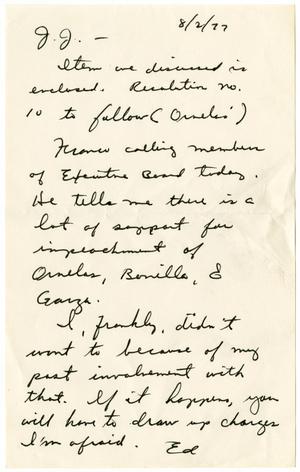 8/2/77
J.J. —
Item we discussed is
enclosed. Resolution no.
10 to follow (Ornelas')
Franco calling members
of Executive Board today.
He tells me there is a
lot of support for
impeachment of
Ornelas, Bonilla, &
Garza.
I, frankly, didn't
want to because of my
past involvement with
that. If it happens, you
will have to draw up charges
I'm afraid.
Ed